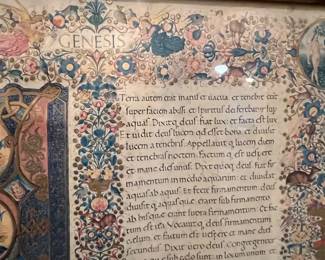 GENESIS
Terra autem erat inanis et vacua, et tenebre erāt
super faciem abissi et spiritus dei ferebatur sup
aquas. Dixitq deus fiat lux: et facta est lux
Et vidit deus lucem qd esset bona: et divisit
lucem a tenebris. Appellavit q lucem diem
et tenebras noctem. Factum q est vespere
et mane dies unus. Dixit quoq deus fiat fir
mamentum in medio aquarum: et dividat
aquas ab aquis. Et fecit firmamentum. divi
sitq aquas que erant sub firmamento
ab his que erant supra firmamentum. et factū
est ita Vocavitq deus firmamentum
cœlum: et factum est vespere et mane dies
secundus. Dixit vero deus. Congregentur
in locum unum et